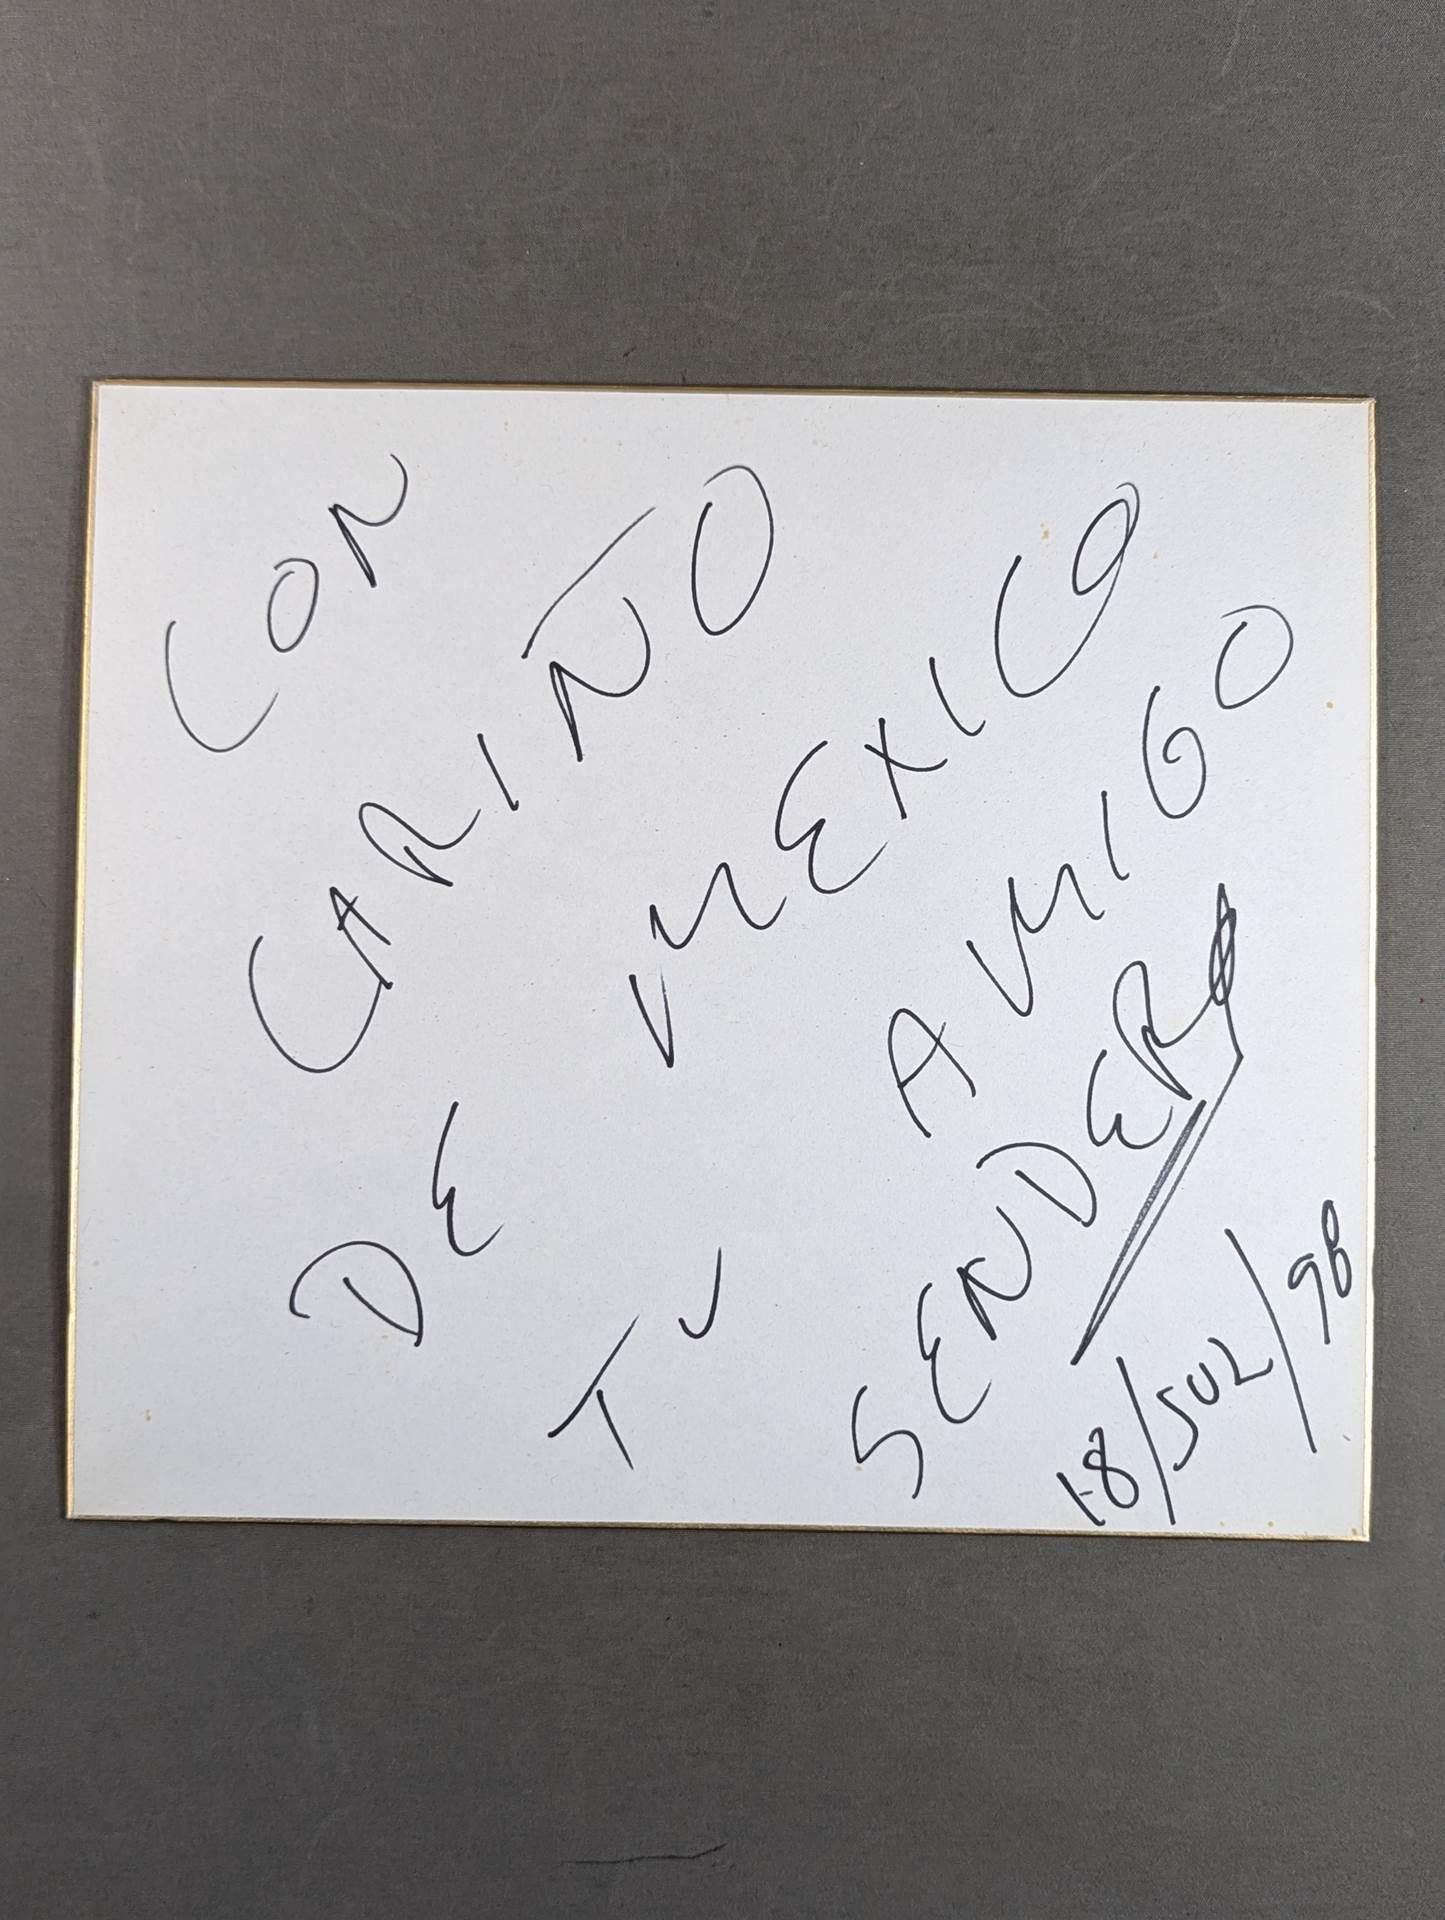 CON
CARIÑO
DE MEXICO
TU AMIGO
SENDERO
18/JUL/98